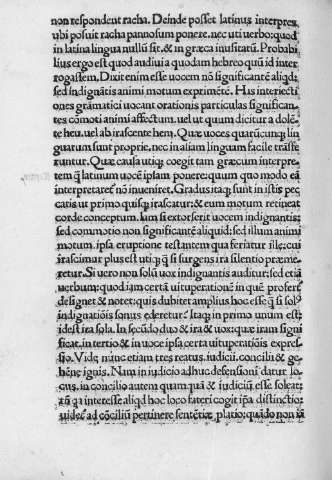 non respondent racha. Deinde posset latinus interpres
ubi posuit racha pannosum ponere, nec uti uerbo: quod
in latina lingua nullũ sit, & in græca inusitatũ. Probabi
lius ergo est quod audiui a quodam hebreo quũ id inter
rogassem, Dixit enim esse uocem nõ significantẽ aliqd:
sed indignãtis animi motum exprimẽtẽ. Has interiecti
ones grãmatici uocant orationis particulas significan
tes cõmoti animi affectum, uel ut quum dicitur a dolẽ
te heu, uel ab irascente hem. Quæ uoces quarũcunq; lin
guarum sunt proprie, nec in aliam linguam facile trãsfe
runtur. Quæ causa utiq; coegit tam græcum interpre
tem q̃ latinum uocẽ ipsam ponere: quum quo modo eã
interpretaref nõ inueniret. Gradus itaq; sunt in istis pec
catis ut primo quisq; irascatur: & eum motum retineat
corde conceptum. Iam si extorserit uocem indignantis:
sed commotio non significantẽ aliquid: sed illum animi
motum, ipsa eruptione testantem qua feriatur ille: cui
irascimur plus est utiq; q̃ si surgens ira silentio præme
retur. Si uero non solũ uox indignantis auditur: sed etiã
uerbum: quod iam certã uituperationẽ in quẽ profert̃
designet & notet: quis dubitet amplius hoc esse q̃ si sol⁹
indignatiõis sonus ederetur? Itaq; in primo unum est:
idest ira sola. In secũdo duo & ira & uox: quæ iram signi
ficat, in tertio & in uoce ipsa certa uituperatiõis expres
sio. Vide nunc etiam tres reatus, iudicii, concilii & ge⸗
hẽnẽ ignis. Nam in iudicio adhuc defensioni datur lo
cus, in concilio autem quam quã & iudiciũ esse soleat:
tñ qa interesse aliqd hoc loco fateri cogit ip̃a distinctio:
uidet ad cõciliũ pertinere sentẽtiæ platio: quãdo non iã